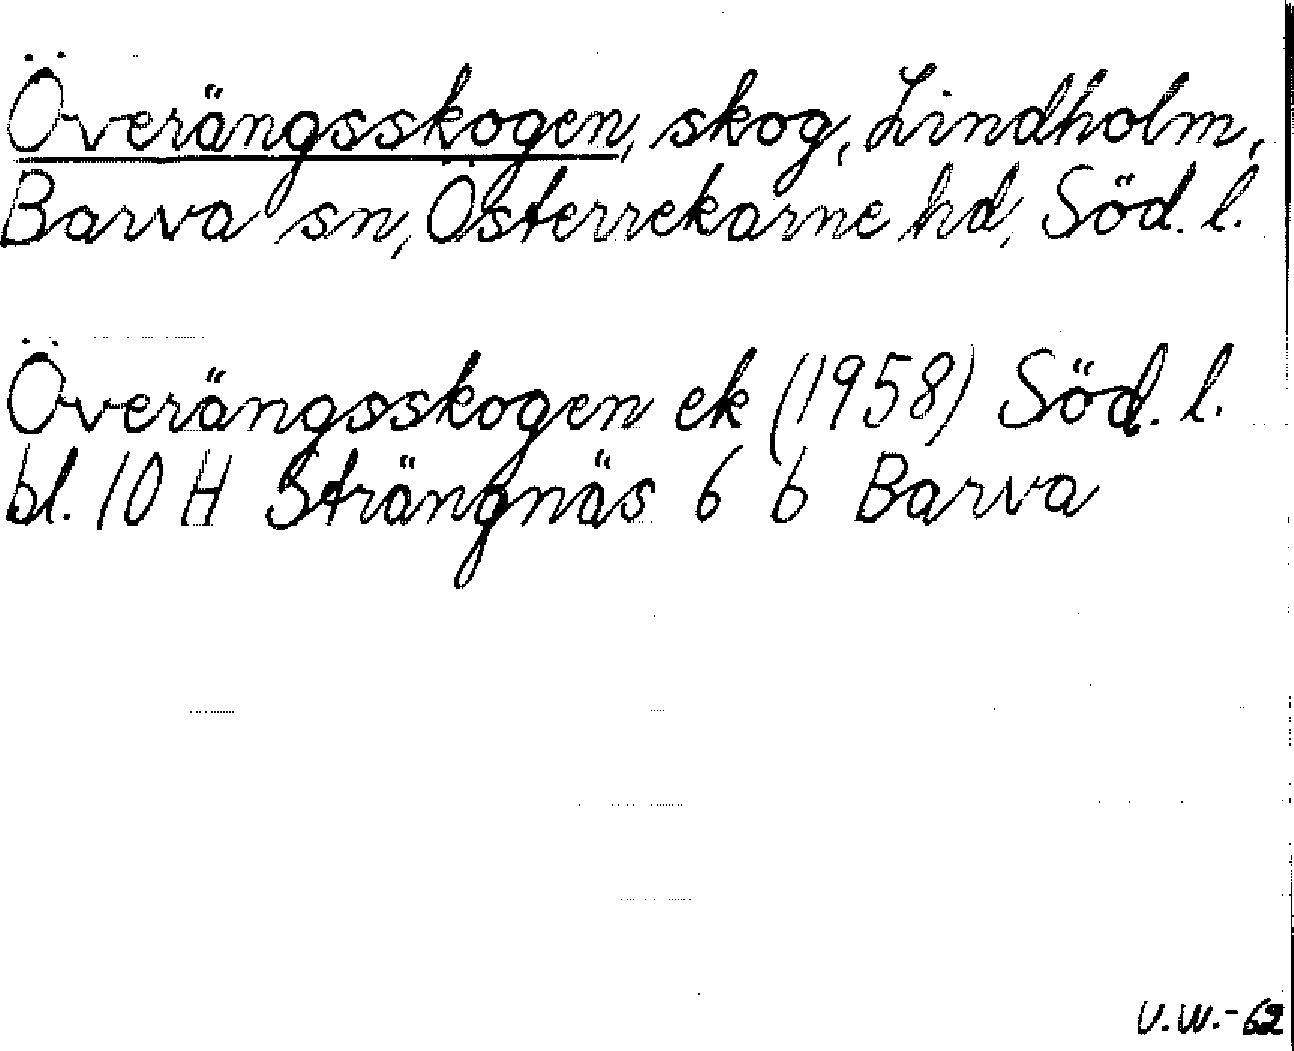 Överängsskogen, skog, Lindholm,
Barva sn, Österrekarne hd, Söd. l.
Överängsskogen ek (1958) Söd. l.
bl. 10 H Strängnäs 6 b Barva
U.W.-62